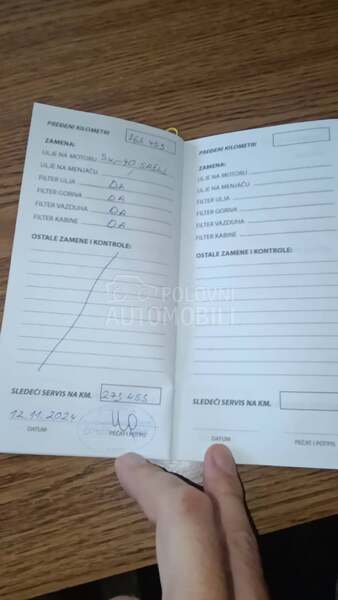 PREĐENI KILOMETRI
ZAMENA:
ULJE NA MOTORU 5W-40 SHELL
ULJE NA MENJAČU
FILTER ULJA DA
FILTER GORIVA DA
FILTER VAZDUHA DA
FILTER KABINE DA
OSTALE ZAMENE I KONTROLE:
SLEDEĆI SERVIS NA KM. 275 455
12.11.2024
DATUM
PEČAT I POTPIS
PREĐENI KILOMETRI
ZAMENA:
ULJE NA MOTORU
ULJE NA MENJAČU
FILTER ULJA
FILTER GORIVA
FILTER VAZDUHA
FILTER KABINE
OSTALE ZAMENE I KONTROLE:
SLEDEĆI SERVIS NA KM.
DATUM
PEČAT I POTPIS
POLOVNI
AUTOMOBILI